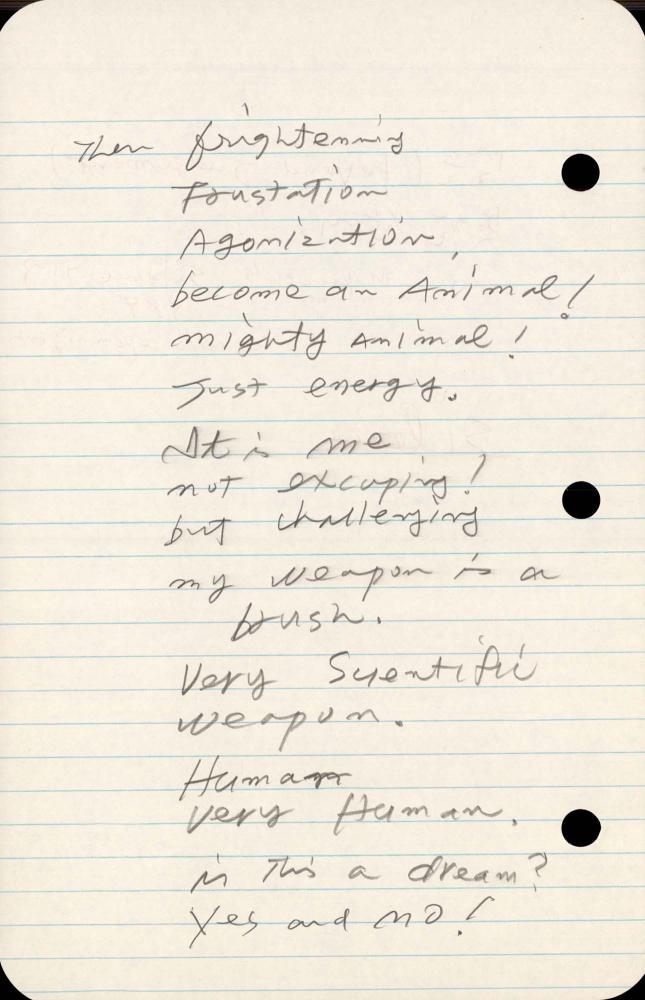 Then frightening
Frustation
Agonization,
become an Animal!
mighty animal!
Just energy.
It is me
not excaping!
but challenging
my weapon is a
brush.
Very Scientific
weapon.
Human
very Human.
is this a dream?
Yes and no!